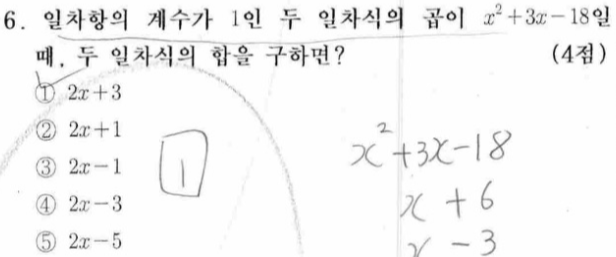 6. 일차항의 계수가 1인 두 일차식의 곱이 x²+3x-18일
때, 두 일차식의 합을 구하면? (4점)
① 2x+3
② 2x+1
③ 2x-1
④ 2x-3
⑤ 2x-5
1
x²+3x-18
x +6
x -3